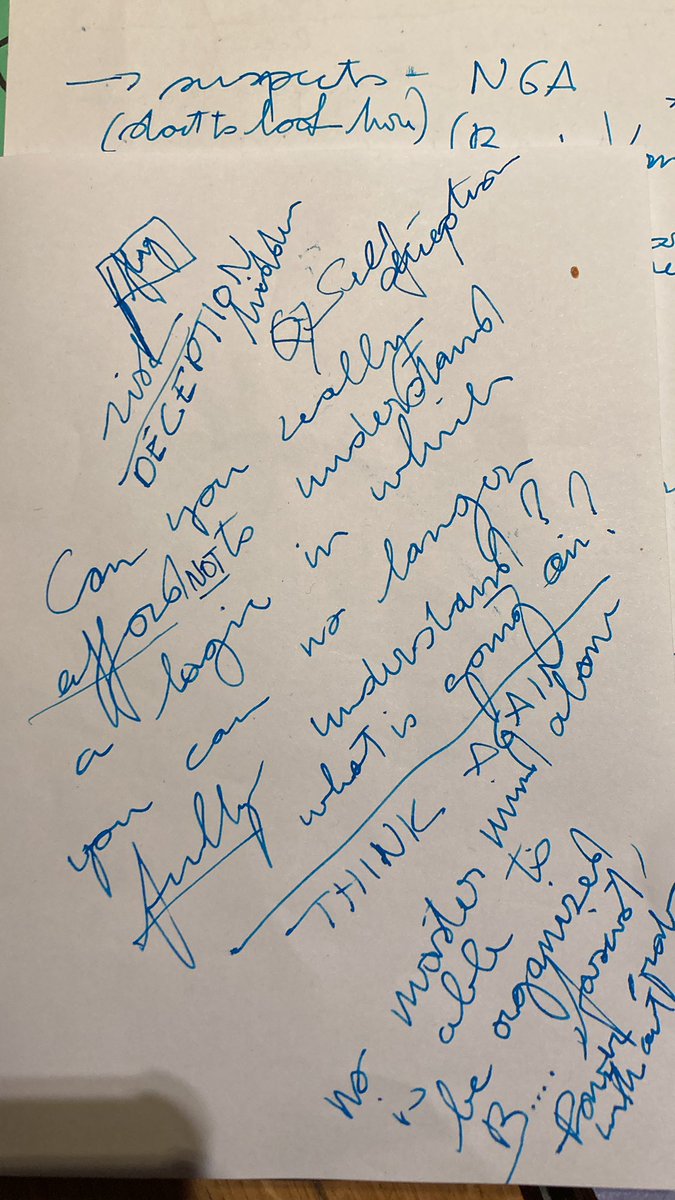 → suspects - NGA
(start to look
risk
DECEPTION
hidden
Self
deception
Can you really
afford NOT to understand
a logic in which
you can no longer
fully understand?
what is going on?
THINK AGAIN
no master mind
is able to
be organized
B....
without